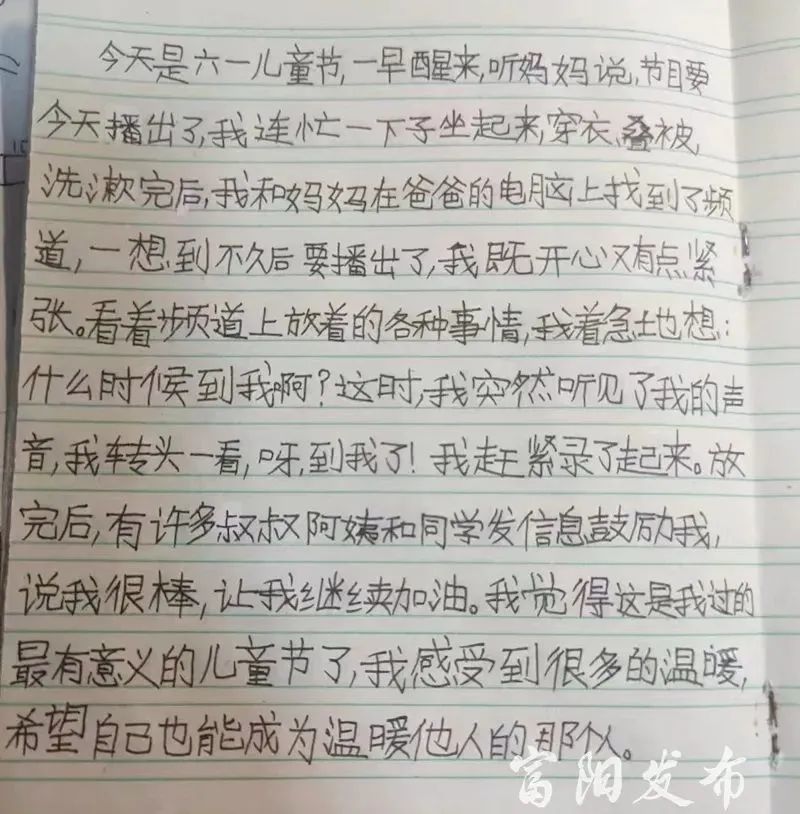 今天是六一儿童节,一早醒来,听妈妈说,节目要
今天播出了,我连忙一下子坐起来,穿衣、叠被,
洗漱完后,我和妈妈在爸爸的电脑上找到了频
道,一想到不久后要播出了,我既开心又有点紧
张。看着频道上放着的各种事情,我着急地想:
什么时候到我啊?这时,我突然听见了我的声
音,我转头一看,呀,到我了!我赶紧录了起来。放
完后,有许多叔叔阿姨和同学发信息鼓励我,
说我很棒,让我继续加油。我觉得这是我过的
最有意义的儿童节了,我感受到很多的温暖,
希望自己也能成为温暖他人的那个人。
富阳发布